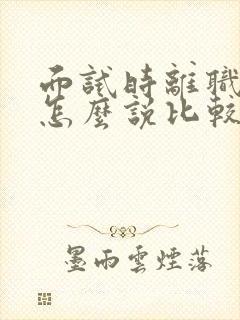 而試時離職
怎麼說比較
墨雨雲煙落